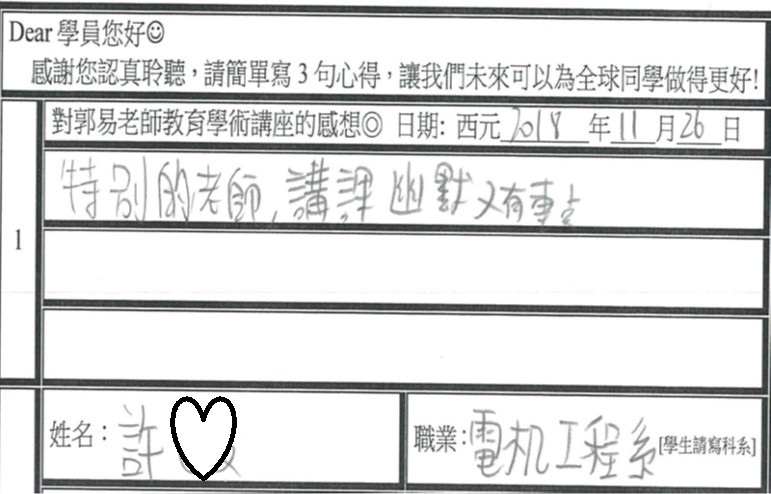 Dear 學員您好☺
感謝您認真聆聽，請簡單寫 3 句心得，讓我們未來可以為全球同學做得更好!
對郭易老師教育學術講座的感想◎ 日期: 西元 2018 年 11 月 26 日
1
特別的老師，講課幽默又有重点
姓名：許
職業：電机工程系 [學生請寫科系]